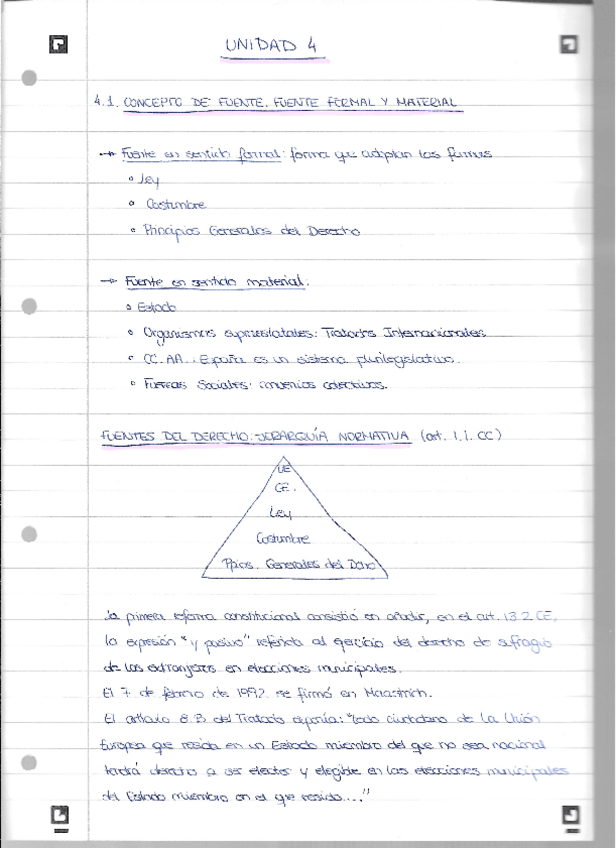 UNIDAD 4
4.1. CONCEPTO DE FUENTE. FUENTE FORMAL Y MATERIAL
→ Fuente en sentido formal: forma que adoptan las
• Ley
• Costumbre
• Principios Generales del Derecho
→ Fuente en sentido material:
• Estado
• Organismos supraestatales: Tratados Internacionales
• CC.AA.: España es un sistema plurilegislativo.
• Fuerzas Sociales: convenios colectivos.
FUENTES DEL DERECHO: JERARQUÍA NORMATIVA (art. 1.1. CC)
UE
CE.
Ley
Costumbre
Ppios. Generales del Dcho
La primera reforma constitucional consistió en añadir, en el art. 13.2 CE,
la expresión "y pasivo" referida al ejercicio del derecho de sufragio
de los extranjeros en elecciones municipales.
El 7 de febrero de 1992 se firmó en Maastrich.
El artículo 8.B del Tratado exponía: "todo ciudadano de la Unión
Europea que resida en un Estado miembro del que no sea nacional
tendrá derecho a ser elector y elegible en las elecciones municipales
del Estado miembro en el que resida...."